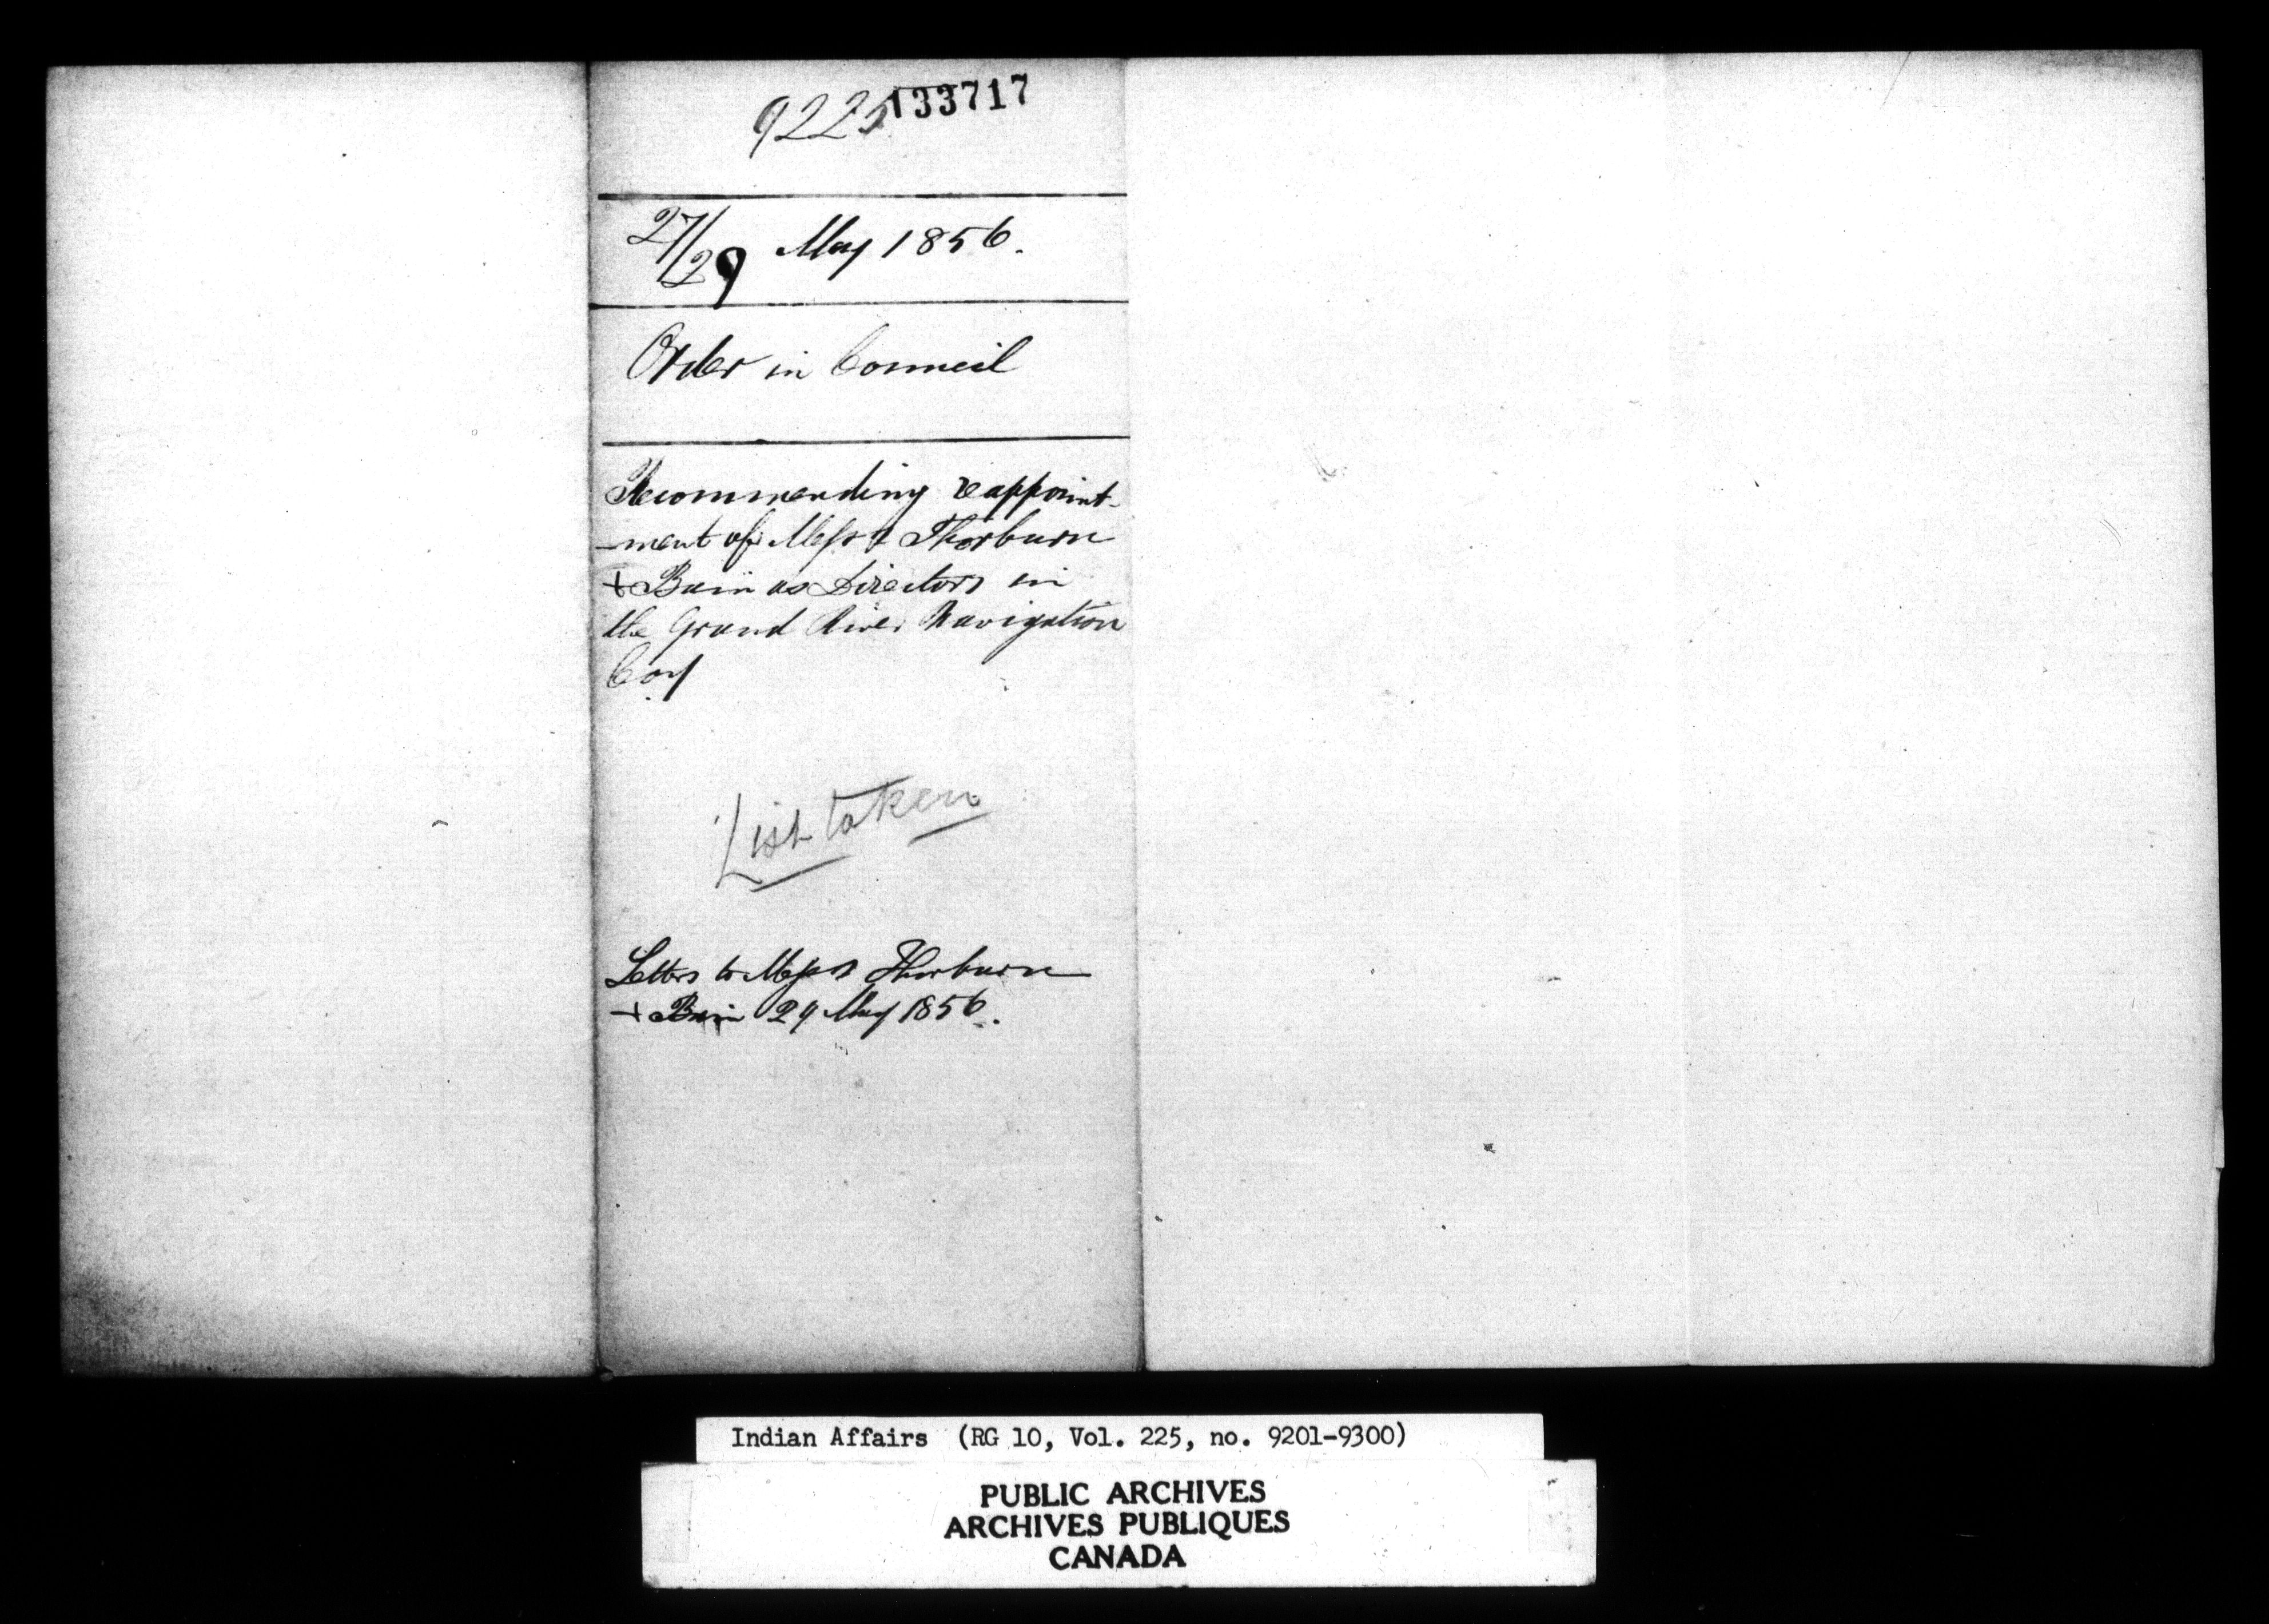 9225
133717
27/29 May 1856.
Order in Council
Recommending reappoint-
-ment of Messrs Thorburn
+ Bain as Directors in
the Grand River Navigation
Coy
List taken
Letters to Messrs Thorburn
+ Bain 29 May 1856.
Indian Affairs (RG 10, Vol. 225, no. 9201-9300)
PUBLIC ARCHIVES
ARCHIVES PUBLIQUES
CANADA